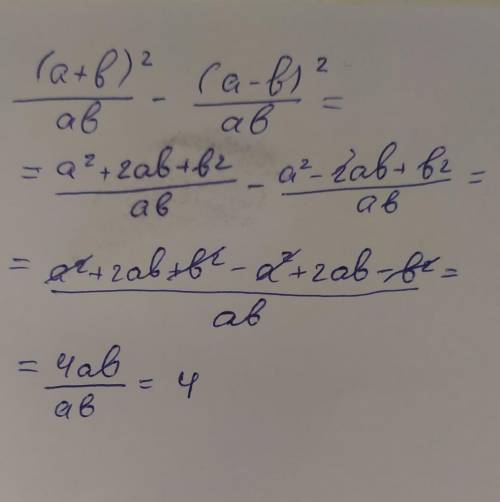 (a+b)²/ab - (a-b)²/ab =
= a²+2ab+b²/ab - a²-2ab+b²/ab =
= a²+2ab+b²-a²+2ab-b²/ab =
= 4ab/ab = 4